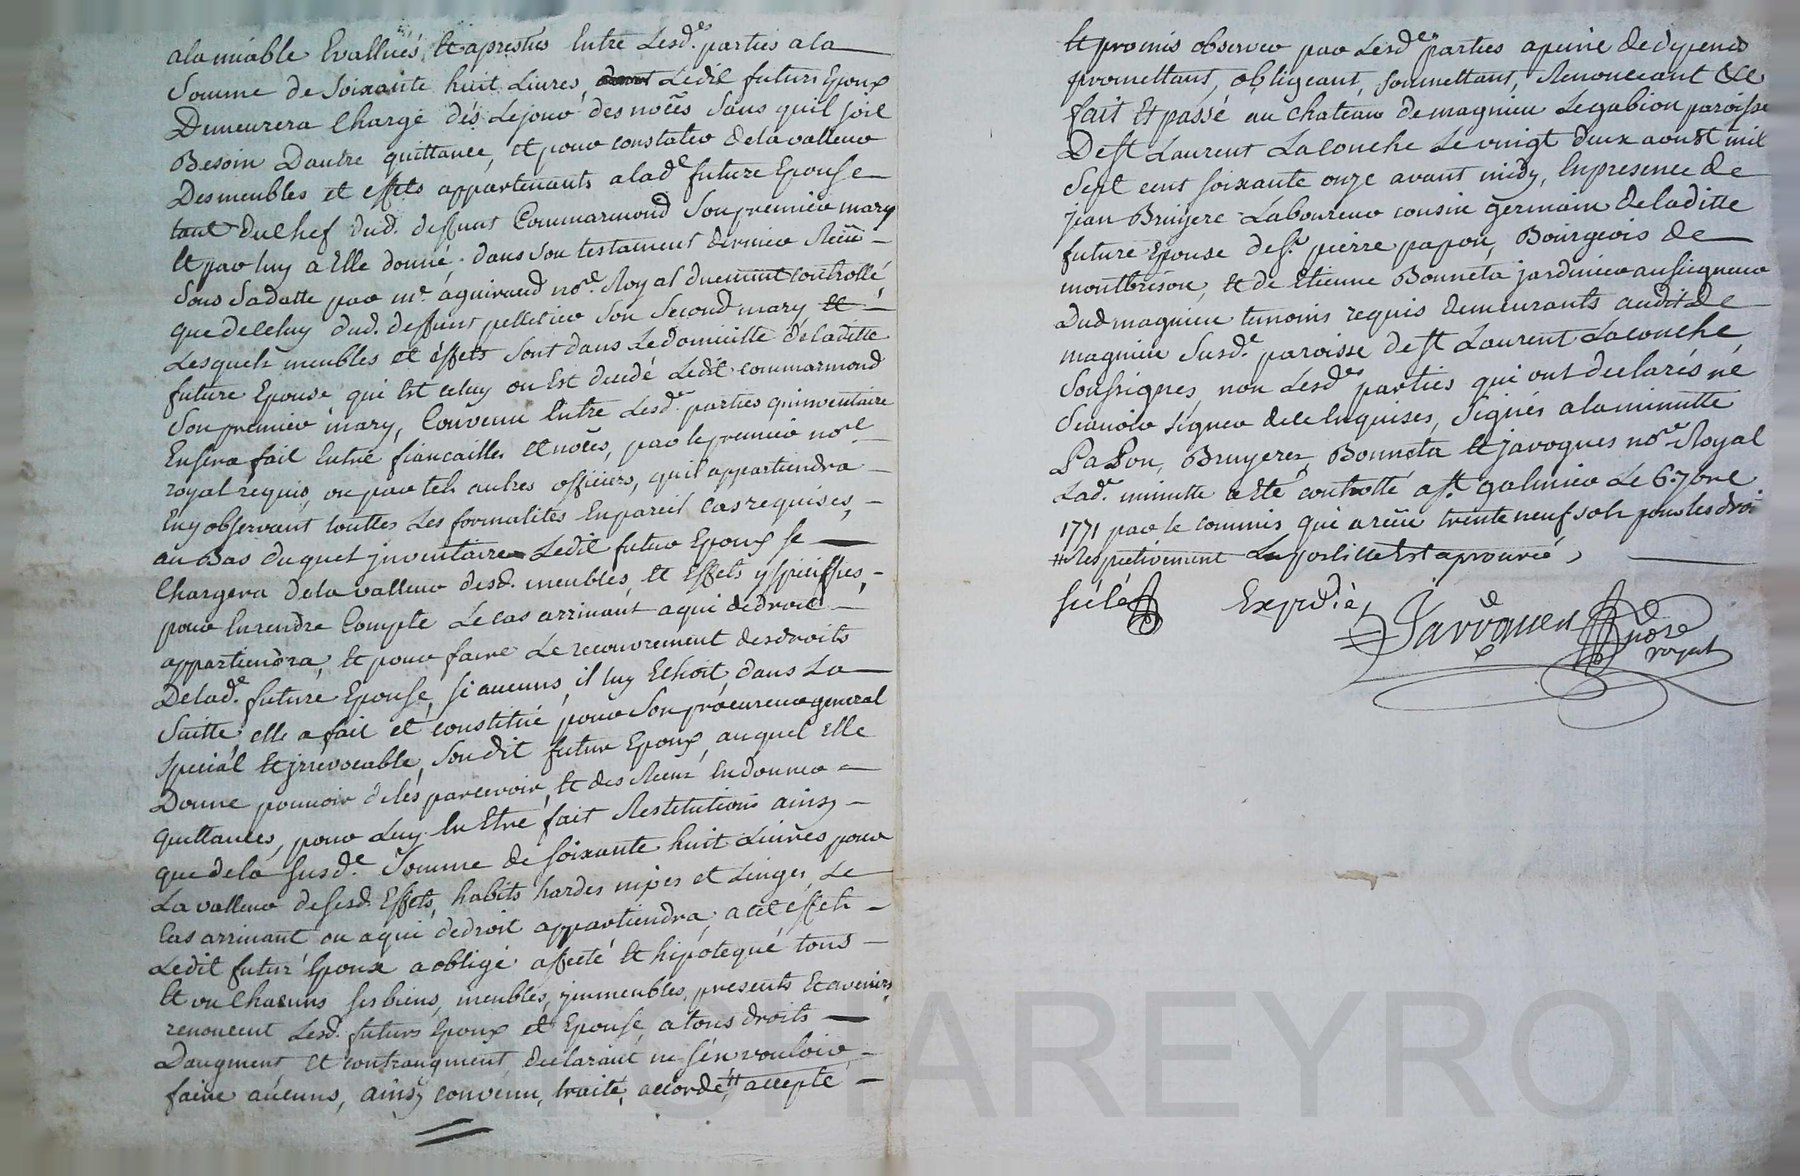 alamiable Evalluès, et aprestés Entre Lesd.e parties ala
Somme de Soixante huit Livres, Ledit futur Epoux
Demeurera Chargé dès Lejour des noces Sans quil soit
Besoin Dautre quittance, et pour constater delavalleur
Desmeubles et effets appartenants alad.e future Epouse
tant Duchef dud. deffunt Commarmond Son premier mary
Et par luy a Elle donné, dans son testament dernier Receu
Sous Sadatte par m.e aguiraud no.re Royal duement controllé,
que deceluy dud. deffunt pelletier Son Second mary et
Lesquels meubles et éffets Sont dans Le domicille deladitte
future Epouse qui Est celuy ou Est decédé Ledit commarmond
Son premier mary, Convenu Entre Lesd.e parties quinventaire
Ensera fait Entre fiancailles et noces, par le premier no.re
royal requis, ou par tels autres officiers, quil appartiendra
En y observant touttes Les formalités En pareil Cas requises,
au Bas duquel jnventaire Ledit futur Epoux se
Chargera dela valleur desd. meubles, et Effets y speciffiés,
pour En rendre Compte Le cas arrivant a qui dedroit
appartiendra, et pour faire Le recouvrement des droits
Delad.e future Epouse, si aucuns, il luy Echoit, dans La
Suitte, elle a fait et constitué pour Son procureur general
special et jrrevocable, Son dit futur Epoux, auquel Elle
Donne pouvoir deles parcevoir, et des Receus En donner
quittances, pour Luy En Etre fait Restitution ainsy
que dela susd.e Somme de soixante huit Livres pour
La valleur desesd. Effets, habits hardes nipes et Linges, Le
Cas arrivant ou a qui dedroit appartiendra, a cet effet
Ledit futur Epoux a obligé affecté Et hipotequé tous
Et un Chacuns ses biens, meubles, jmmeubles, presents Et avenirs,
renoncent Lesd. futurs Epoux et Epouse a tous droits
Daugment, et contraugment, declarant ne s'en vouloir
faire aucuns, ainsy convenu, traité, accordé, # accepté
Et promis observer par Lesd.es parties apeine dedypends
promettant, obligeant, soumettant, Renonceant &c
fait Et passé au Chateau demagnieu Legabion paroisse
Dest Laurent Laconche Le vingt deux aoust mil
Sept cent soixante onze avant midy, En presence de
jean Bruyere Laboureur cousin germain deladitte
future Epouse de s.r pierre papon, Bourgeois de
montbrison, et de Etienne Bonneta jardinier au seigneur
Dud magnieu temoins requis demeurants audit de
magnieu Susd.e paroisse de st Laurent Laconche,
Soussignés, non Lesd.es parties qui ont declarés ne
Scavoir signer dece Enquises, Signés ala minutte
PaPon, Bruyere, Bonneta et javogues no.re Royal
Lad.e minutte a Eté controllé a st galmier Le 6.e 7bre
1771 par le commis qui a receu trente neuf sols pour les droi
# Respectivement La postille Est aprouvée,
séelé Expedié,
Javogues nore
royal
CHAREYRON